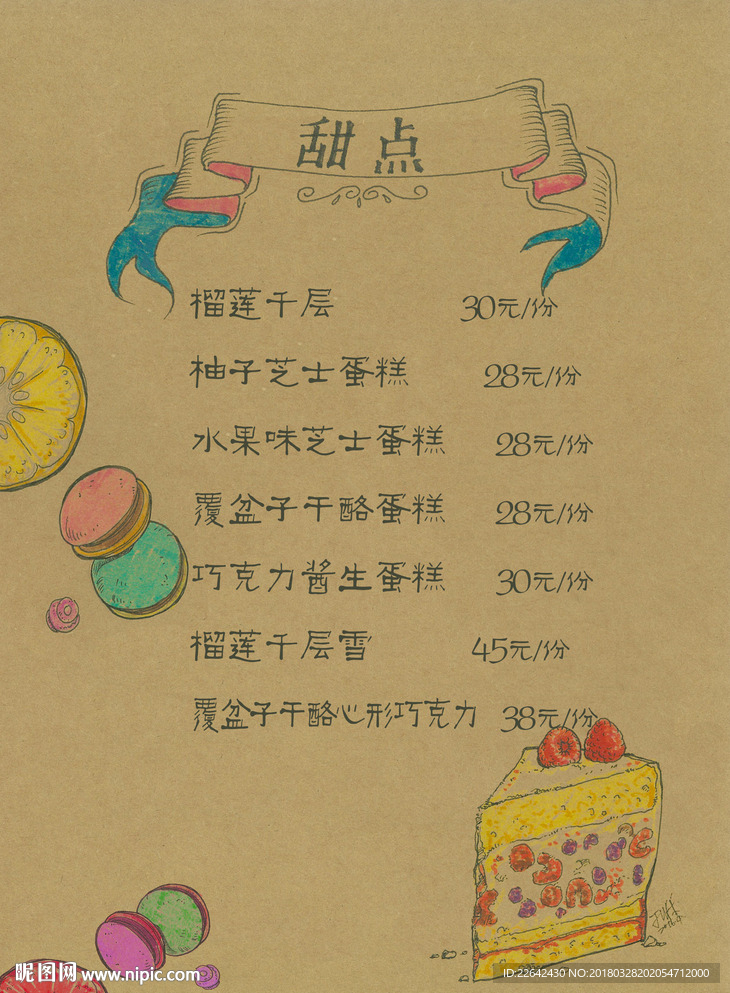 甜点
榴莲千层 30元/份
柚子芝士蛋糕 28元/份
水果味芝士蛋糕 28元/份
覆盆子干酪蛋糕 28元/份
巧克力酱生蛋糕 30元/份
榴莲千层雪 45元/份
覆盆子干酪心形巧克力 38元/份
昵图网 www.nipic.com
ID:22642430 NO:20180328202054712000